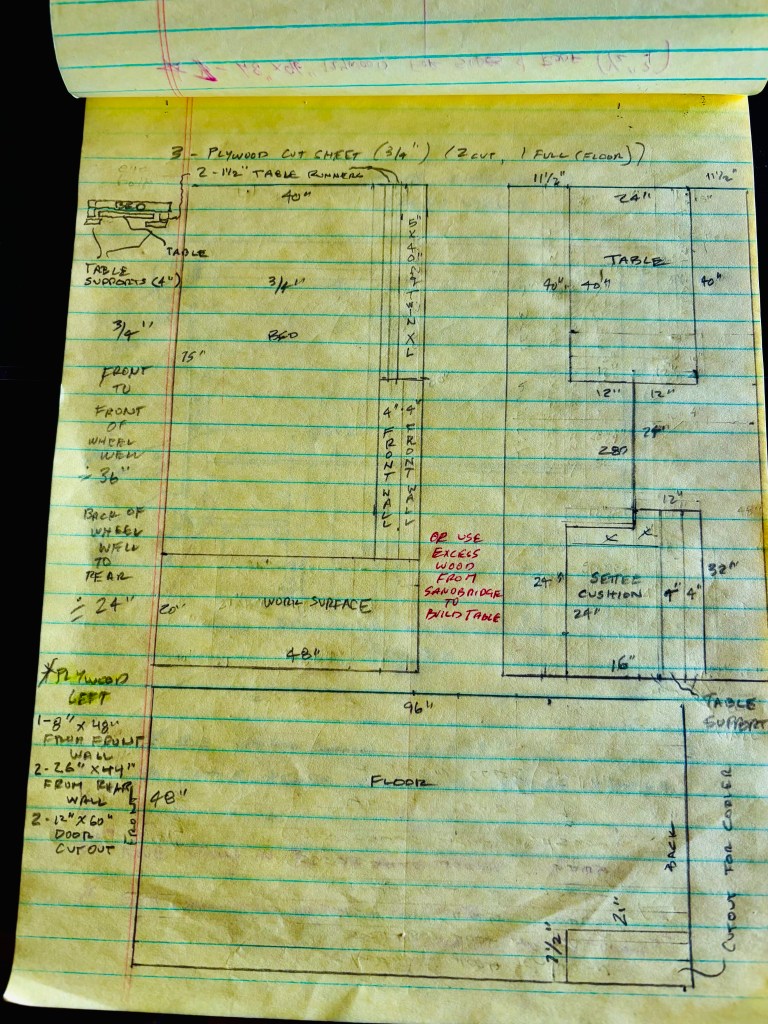 3 - PLYWOOD CUT SHEET (3/4") (2 CUT, 1 FULL (FLOOR))
2 - 1½" TABLE RUNNERS
40"
BED
TABLE
TABLE
SUPPORTS (4")
3/4"
FRONT
TO
FRONT
OF
WHEEL
WELL
36"
BACK OF
WHEEL
WELL
TO
REAR
24"
75"
3/4"
BED
4" FRONT WALL
4" FRONT WALL
20"
WORK SURFACE
48"
OR USE
EXCESS
WOOD
FROM
SANDBRIDGE
TO
BUILD TABLE
11½"
24"
11½"
TABLE
40"
40"
40"
12"
12"
24"
12"
24"
SETEE
CUSHION
24"
4"
4"
32"
16"
TABLE
SUPPORT
*PLYWOOD
LEFT
1-8" X 48"
FROM FRONT
WALL
2-26" X 44"
FROM REAR
WALL
2-12" X 60"
DOOR
CUTOUT
96"
FLOOR
48"
FRONT
BACK
21"
CUTOUT FOR COOLER